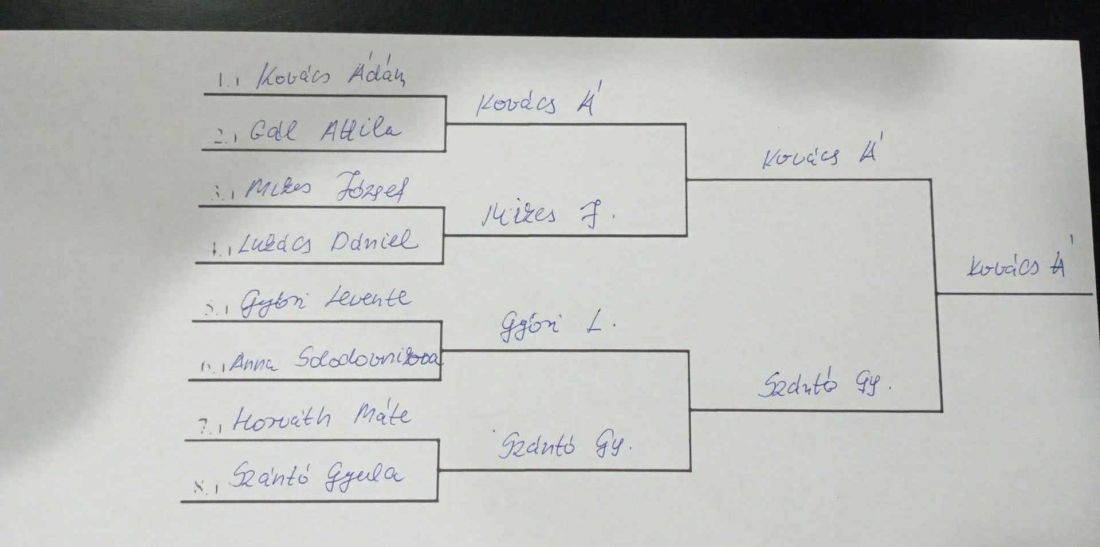 1., Kovács Ádám
2., Gál Attila
3., Mizes József
4., Lukács Dániel
5., Győri Levente
6., Anna Solodovnikova
7., Horváth Máte
8., Szántó Gyula
Kovács Á
Mizes J.
Győri L.
Szántó Gy.
Kovács Á
Szántó Gy.
Kovács Á